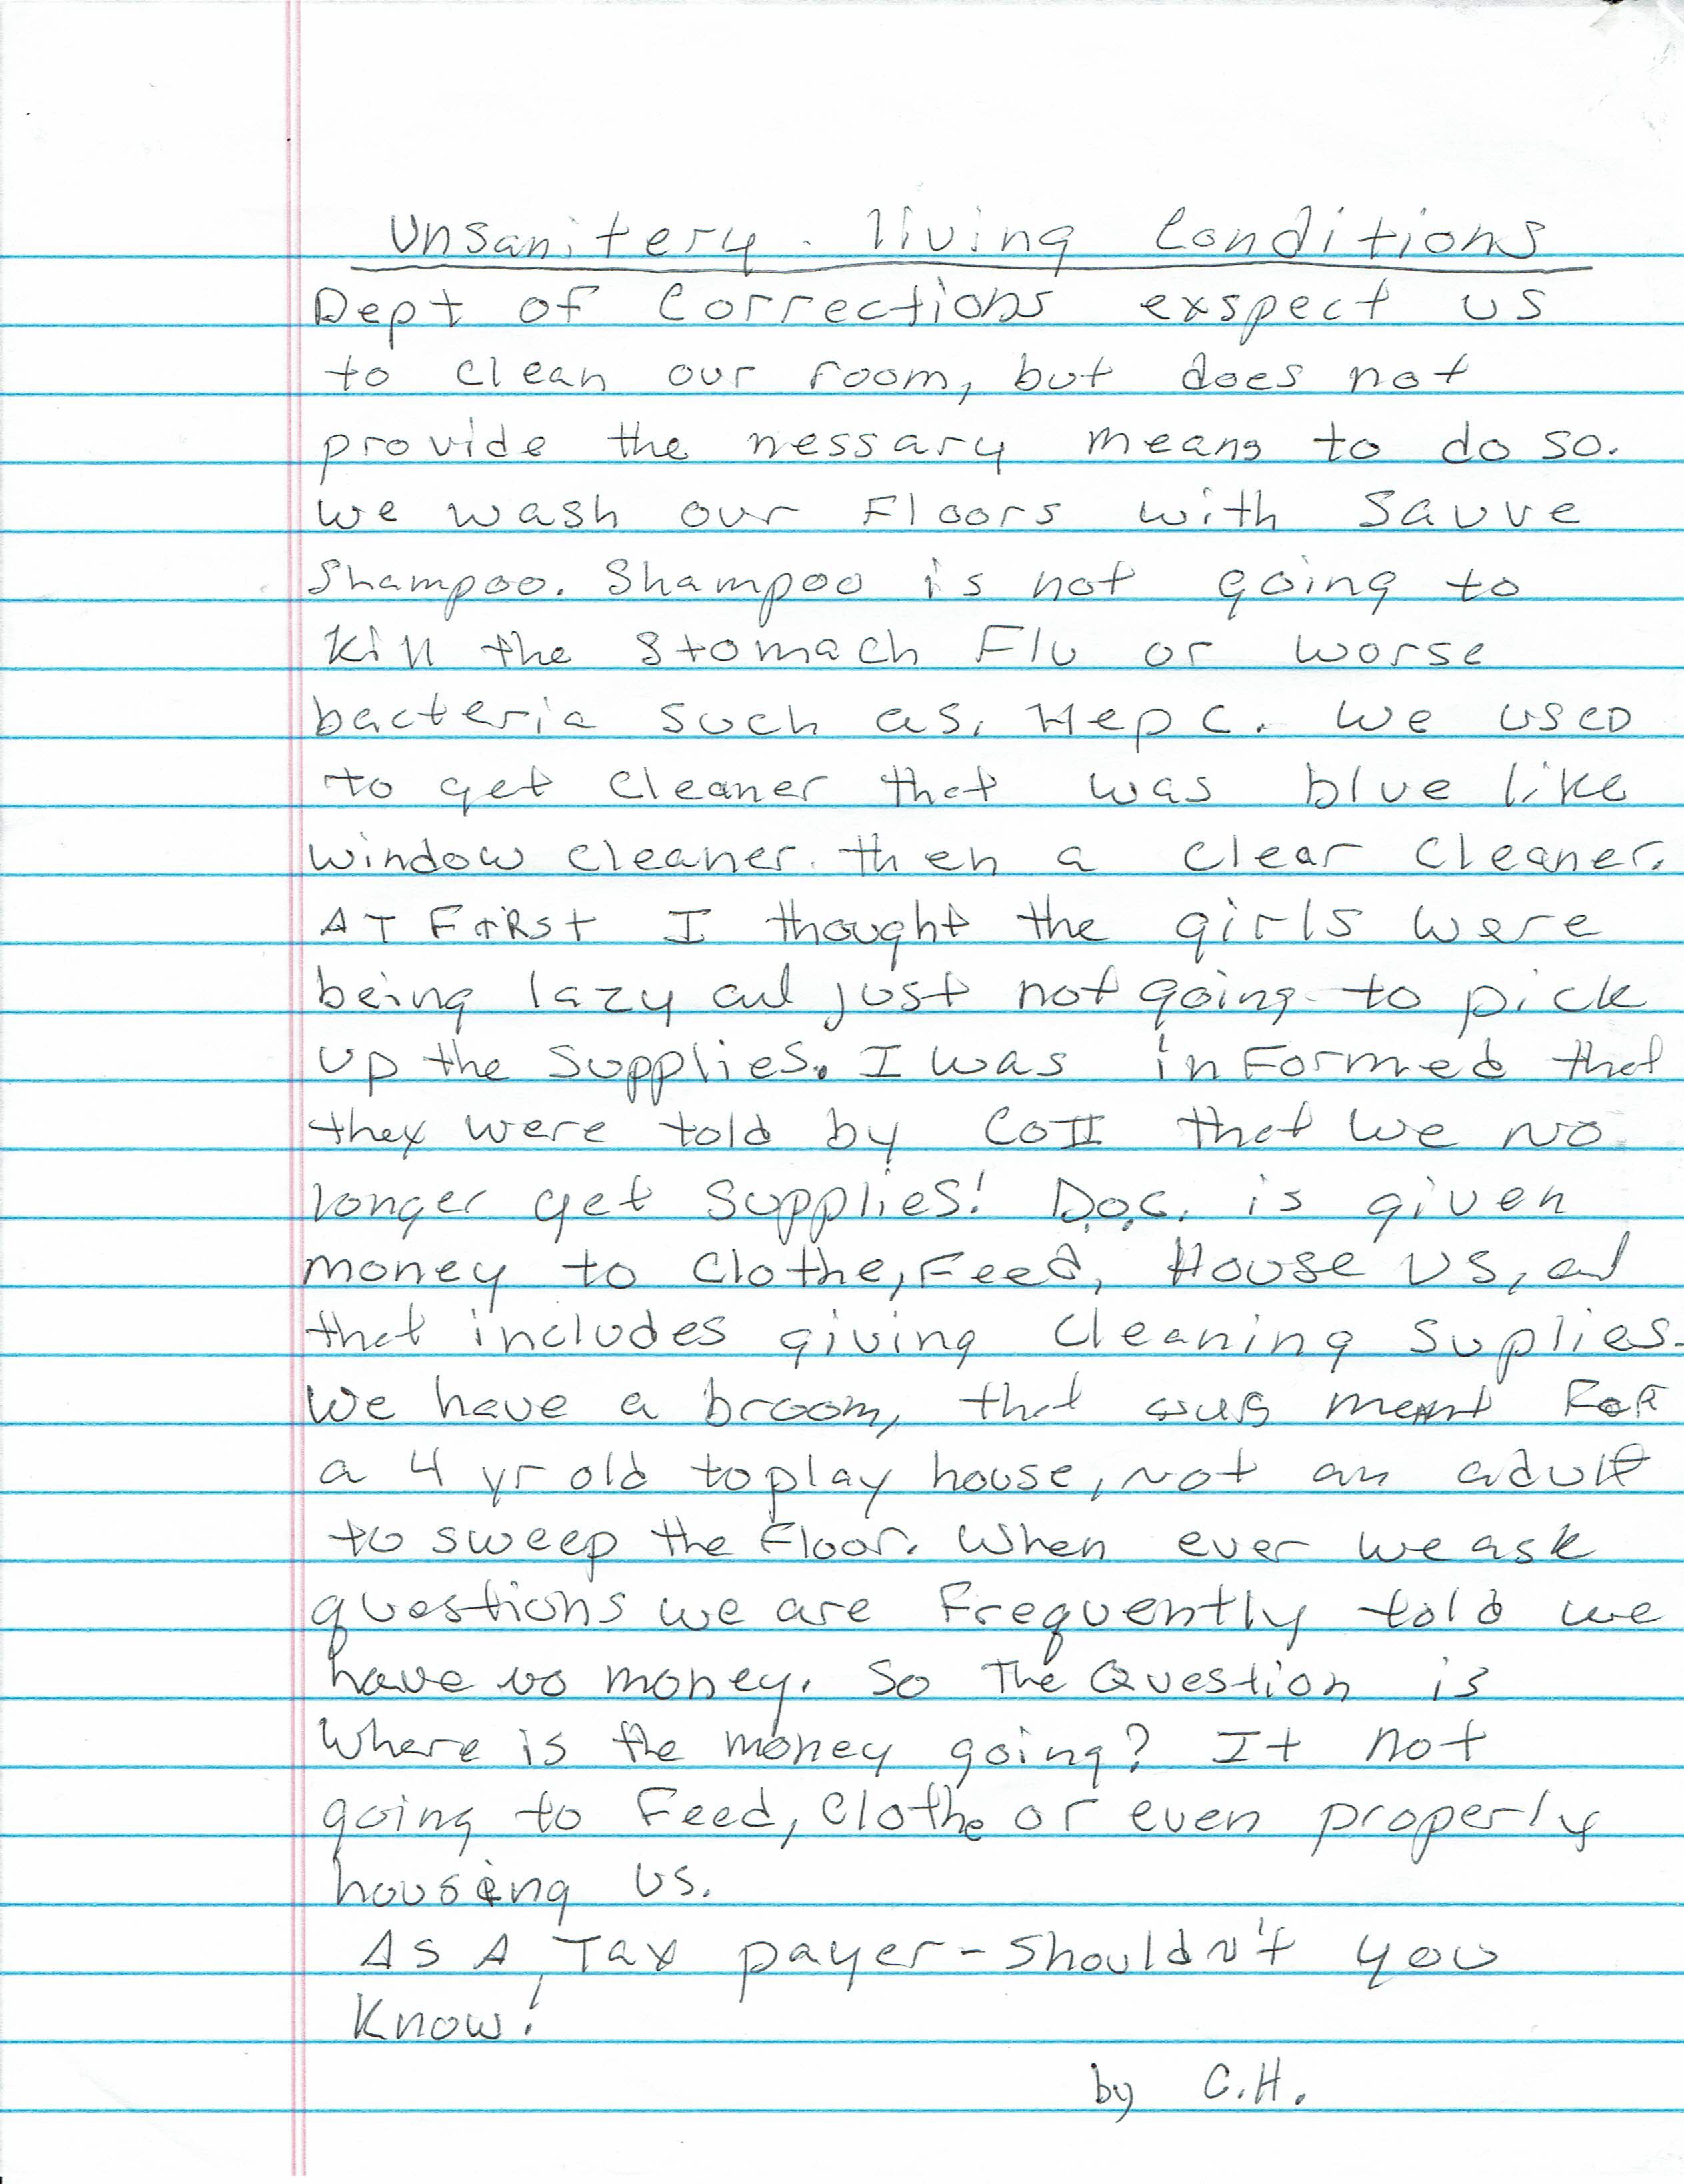 Unsanitery living Conditions
Dept of Corrections exspect us
to clean our room, but does not
provide the nessary means to do so.
We wash our Floors with Sauve
Shampoo. Shampoo is not going to
kill the Stomach Flu or worse
bacteria such as, Hep C. We used
to get cleaner that was blue like
window cleaner. then a clear cleaner.
AT First I thought the girls were
being lazy and just not going to pick
up the supplies. I was informed that
they were told by COII that we no
longer get supplies! D.o.c. is given
money to Clothe, Feed, House us, and
that includes giving cleaning suplies.
We have a broom, that was meant For
a 4 yr old to play house, not an adult
to sweep the Floor. When ever we ask
questions we are Frequently told we
have no money. So The Question is
Where is the money going? It not
going to Feed, Clothe or even properly
housing us.
As A Tax payer - Shouldn't you
Know!
by C.H.